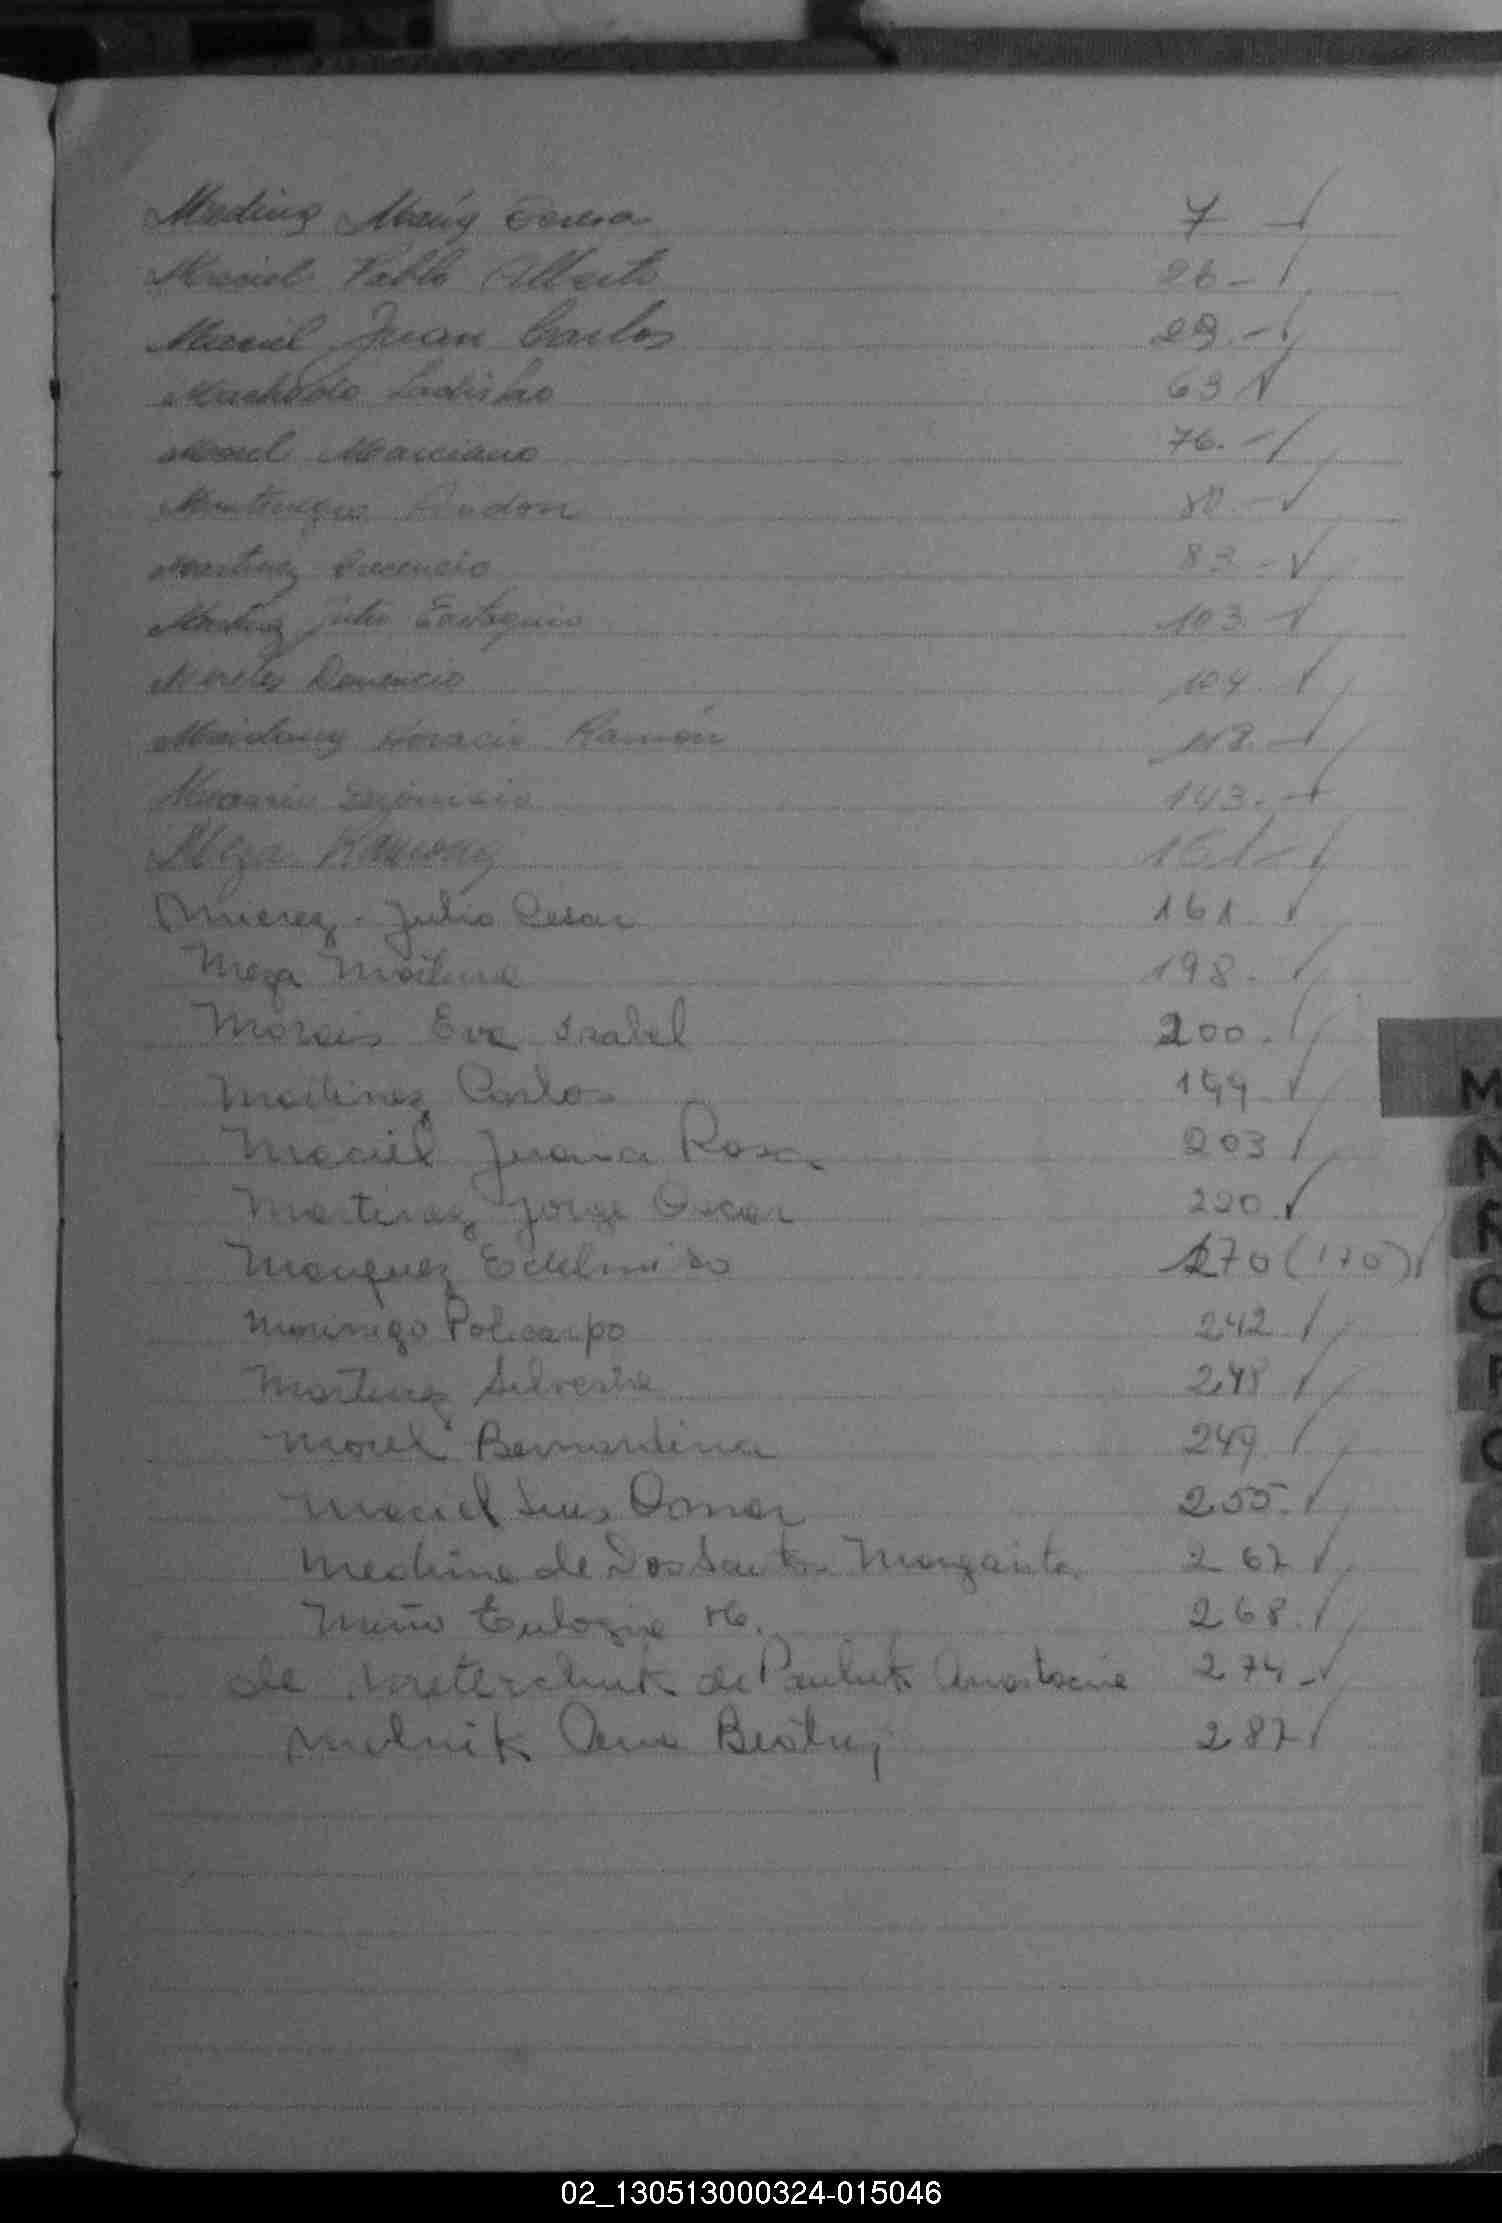 Medina María Teresa 7
Maciel Pablo Alberto 26 -
Maciel Juan Carlos 29. -
Machado Ladislao 63
Morel Marciano 76. -
Montenegro Rudon 80. -
Martinez Inocencio 83 -
Martinez Julio Eustaquio 103 -
Moreles 104
Maidana Horacio Ramón 118. -
143. -
Meza Ramona 161 -
Mierez Julio Cesar 161.
Meza 198.
Morais Eva Isabel 200.
Martinez Carlos 199
Maciel Juana Rosa. 203
Martinez Jorge Oscar 220.
Marquez Edelmiro 170 (170)
Morinigo Policarpo 242
Martinez Silvestre 248
Morel Bernardina 249
Maciel Luis Omar 255.
Medina de Dos Santos Margarita 267
Miño Eulogia 268.
de de Pauluk Anastacia 274 -
Melnik Ana Beatriz 287
M
N
R
O
P
02_130513000324-015046